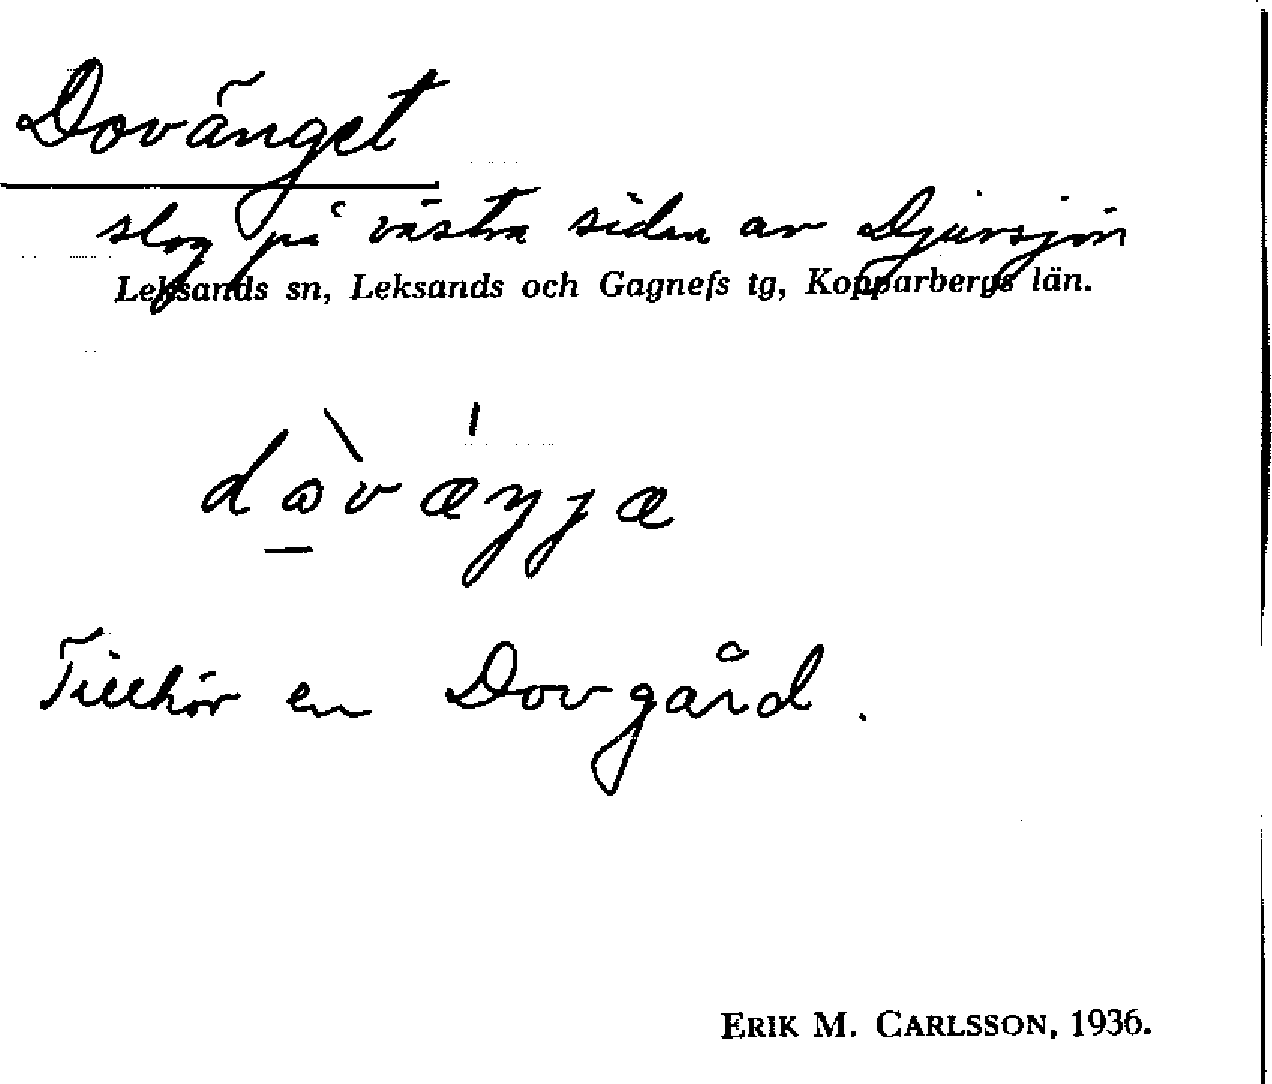 Dovänget
slog på västra sidan av Djursjön
Leksands sn, Leksands och Gagnefs tg, Kopparbergs län.
Tillhör en Dovgård.
ERIK M. CARLSSON, 1936.